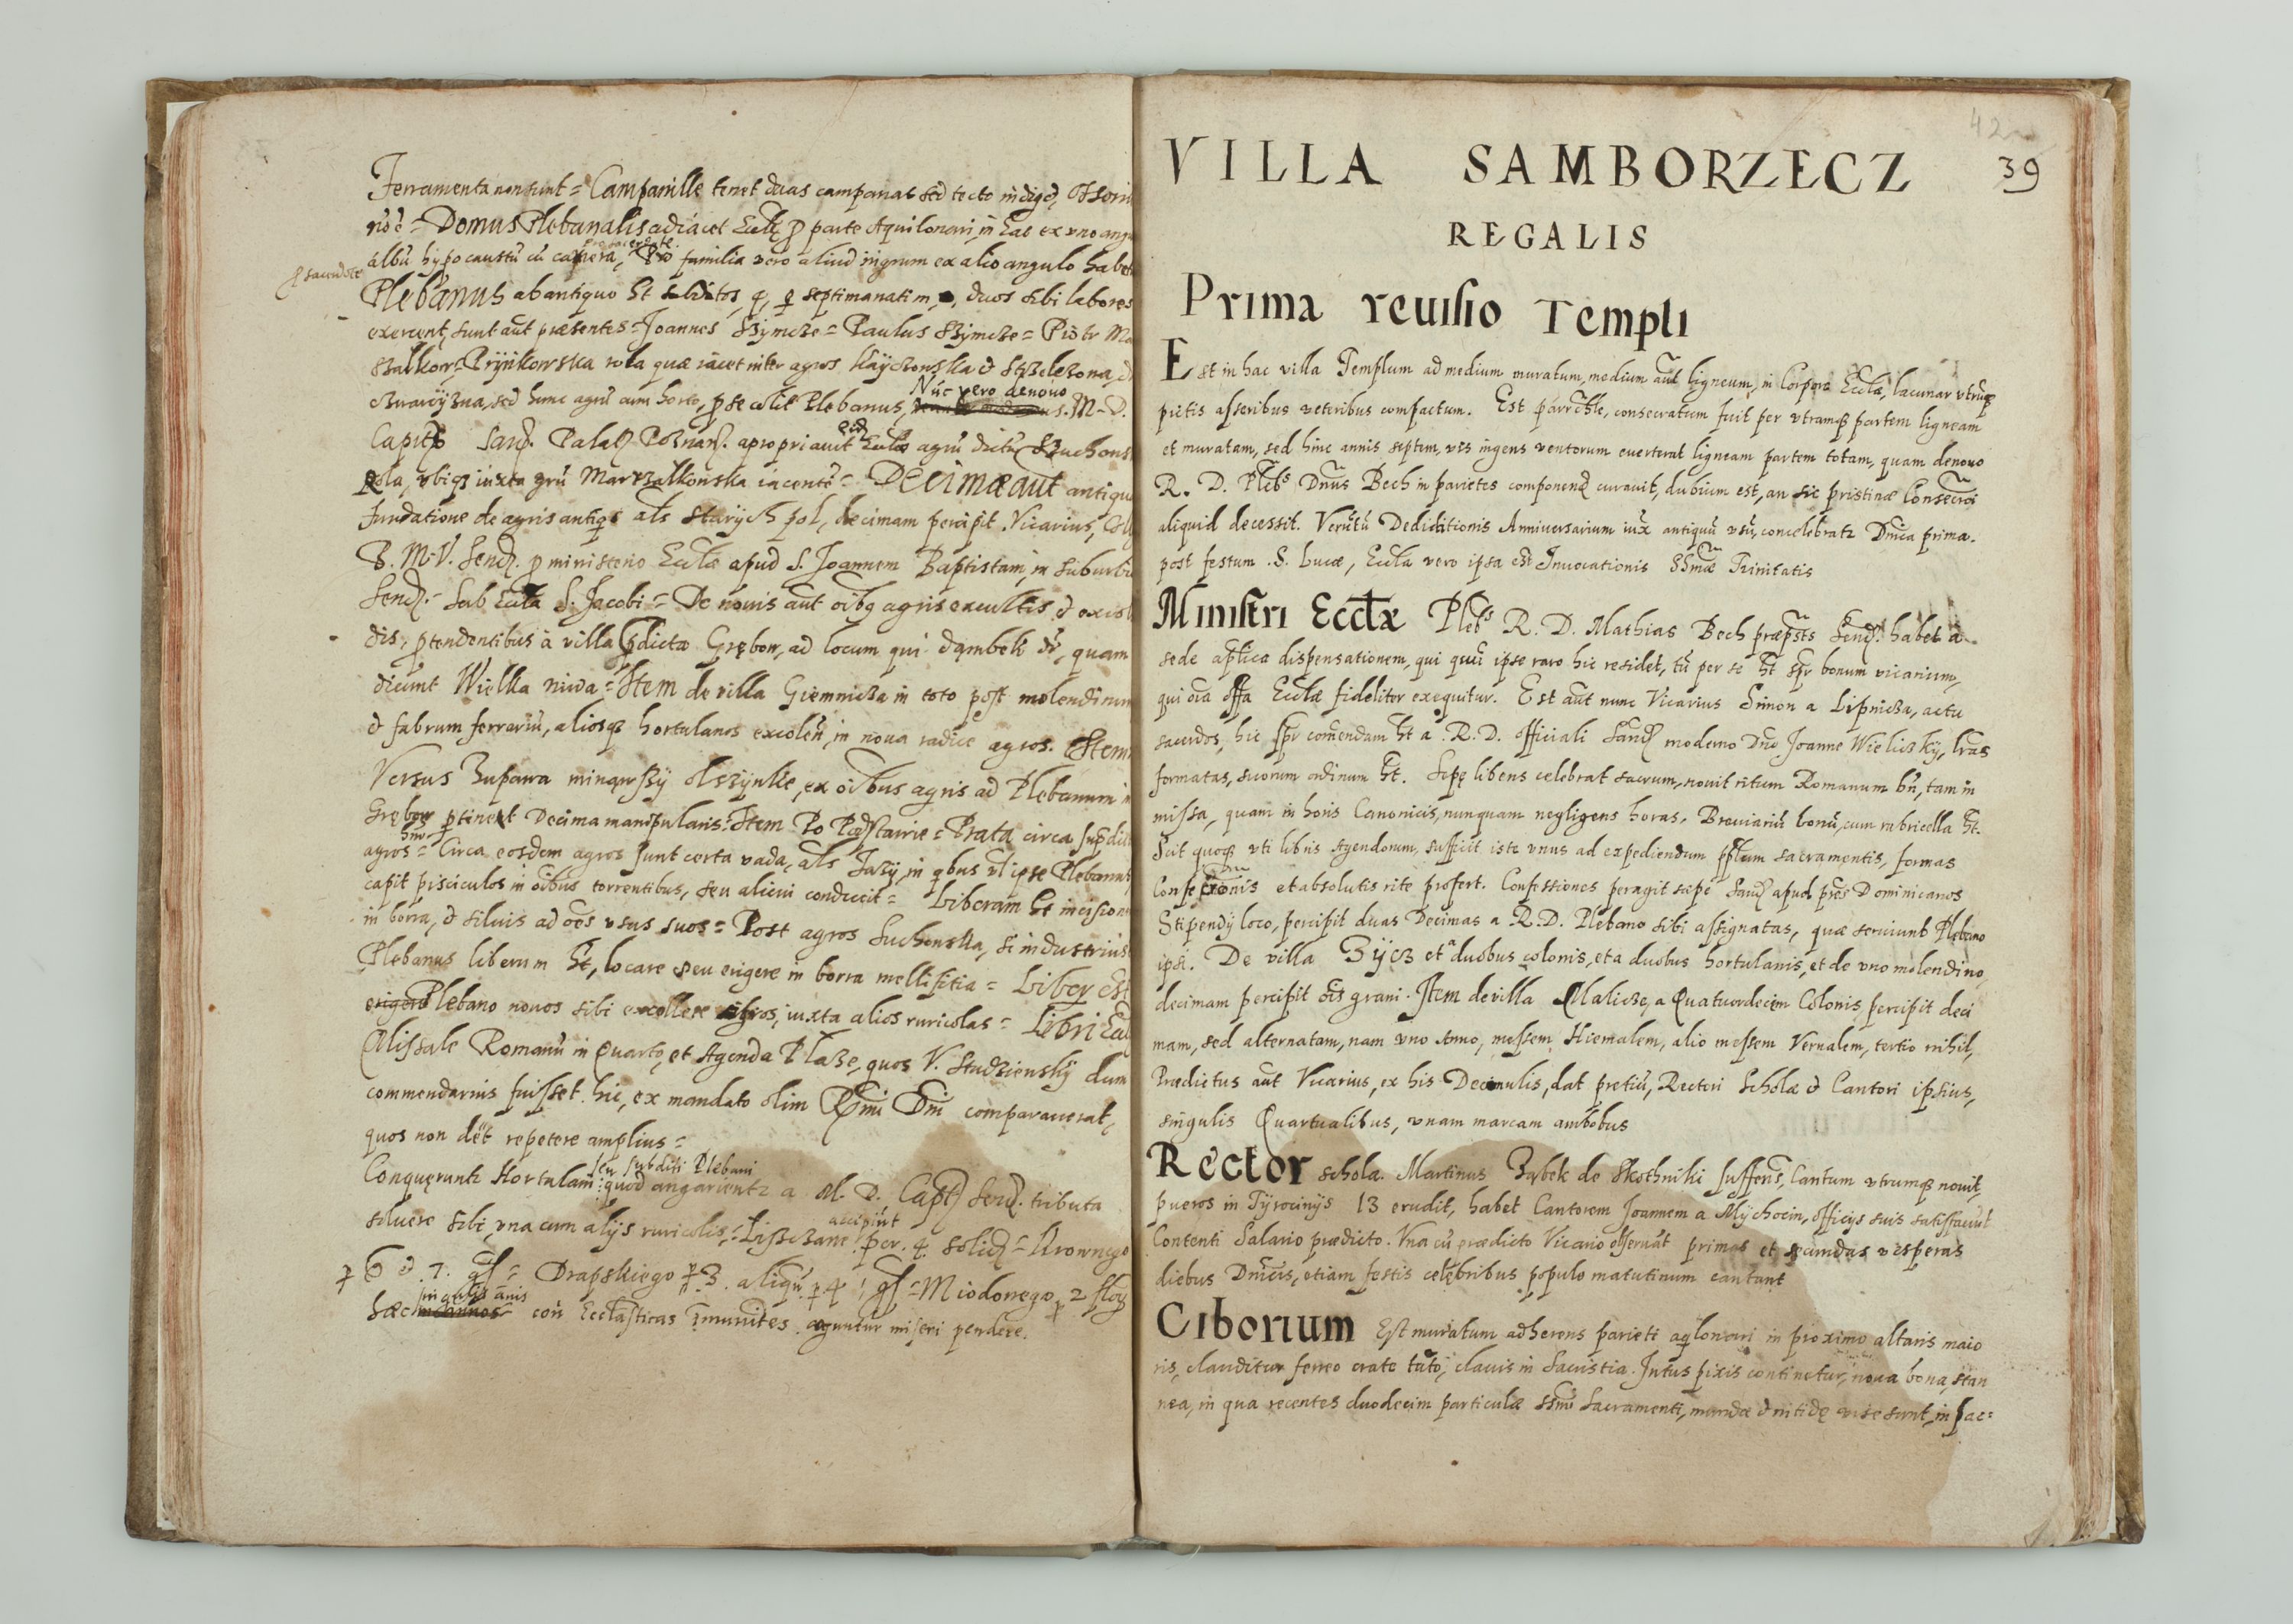 Ferramenta non sunt = Campanille tenet duas campanas sed tecto indiget,
nō ē = Domus Plebanalis adiacet Eccłę p parte Aquilonari, in hac ex vno angu
albū hypocaustū cū camera, Pro familia vero aliud nigrum ex alio angulo habet
p sacerdote
Plebanus ab antiquo ht subditos, q, septimanatim, duos sibi labores
exercent, sunt aut præsentes = Joannes Szymcze = Paulus Szymcze = Piotr Ma
szalkow = Prynkowska rola quæ iacet inter agros Kayczowska et
sed hunc agrū cum horto, p se colit Plebanus, Nūc vero denouo M. D.
Capit Sand. Palat Poznan. apropriauit Eccłæ agrū dictū Szuchows
Rola, vbiq iuxta grū Marszalkowska iacentē = Decimæ aut antiqu
fundatione de agris antiqs als starych pol, decimam percipit Vicarius,
B. M. V. Send. p ministerio Eccłæ apud S. Joannem Baptistam, in suburbi
Send. = sub Eccła S. Jacobi = De nouis aut oibq agris excultis et excol
dis, ptendentibus a villa pdicta Grębow, ad locum qui dąmbek dr, quam
dicunt Wielka niwa = Item de villa Giemnicza in toto post molendinum
et fabrum ferrariū, aliosq hortulanos excolen, in noua radice agros. Item
Versus Zupawa minąwszy olszynke, ex oibus agris ad Plebanum in
Grębow ptinent Decima manipularis = Item Po Podstawie = Prata circa supdic
agros = Circa eosdem agros sunt certa vada, als Jazy, in qbus vl ipse Plebanus
capit pisciculos in oibus torrentibus, seu alicui conducit = Liberam ht incision
in borra, et siluis ad oēs vsus suos = Post agros Suchowska, si industrius
Plebanus liberum ht, locare seu erigere in borra mellificia = Liber est
Plebano nouos sibi excollere agros, iuxta alios ruricolas = Libri Ecc
Missale Romanū in Quarto, et Agenda Plaze, quos V. Studzienskÿ dum
commendarius fuisset hic, ex mandato olim Rmi Dni comparauerat,
quos non det repetere amplius =
seu subditi Plebani
Conquęruntr Hortulani quod angarientr a M. D. Capt Send. tributa
soluere sibi, vna cum alijs ruricolis = accipiūt per. 4. solid = Krownego
p 6 et 7. gs = Drapskiego p 3. aliqū p 4 gs = Miodonego p 2 floy
singulis anis
hæc con Eccłasticas imunites coguntur miseri pendere.
42
39
VILLA SAMBORZECZ
REGALIS
Prima reuisio Templi
Est in hac villa Templum ad medium muratum, medium aut ligneum, in Corpora Eccłæ, lacunar vtrūq
pictis asseribus veteribus compactum. Est parrchle, consecratum fuit per vtramq partem ligneam
et muratam, sed hinc annis septem, vis ingens ventorum euerterat ligneam partem totam, quam denouo
R. D. Plebs Dnus Bech in parietes componend curauit, dubium est, an sic pristinæ Consecrōi
aliquid decessit. Verūtū Dedicationis Anniuersarium iux antiquū vsū, concelebratr Dnica prima.
post festum S. Lucæ, Eccła vero ipsa est Inuocationis SSmæ Trinitatis
Ministri Eccłæ Plebs R. D. Mathias Bech præpsts Send. habet a
sede aplica dispensationem, qui quū ipse raro hic residet, tū per se ht spr bonum vicarium,
qui oia offa Eccłæ fideliter exequitur. Est aut nunc Vicarius Simon a Lipnicza, actu
sacerdos, hic spr comendam ht a R. D. officiali Sand moderno Dno Joanne Wieliczkÿ, lras
formatas, suorum ordinum ht. Sępę libens celebrat sacrum, nouit ritum Romanum bn, tam in
missa, quam in horis Canonicis, nunquam negligens horas. Breviariū bonū, cum rubricella ht.
Scit quoq vti libris Agendorum, sufficit iste vnus ad expediendum pplum sacramentis, formas
Consecrōnis et absolutis rite profert. Confessiones peragit sæpe Sand apud pres Dominicanos
Stipendÿ loco, percipit duas Decimas a R. D. Plebano sibi assignatas, quæ seruiunt Plebano
ipsi. De villa Zÿcz et a duobus colonis, et a duobus hortulanis, et de vno molendino,
decimam percipit ois grani. Item de villa Malicze, a Quatuordecim Colonis, percipit deci
mam, sed alternatam, nam vno Anno, messem Hiemalem, alio messem Vernalem, tertio nihil,
Prædictus aut Vicarius, ex his Decimulis, dat pretiū, Rectori Scholæ et Cantori ipsius,
singulis Quartualibus, vnam marcam ambobus
Rector scholæ Martinus Ząbek de Skothniki sufferis, Cantum vtrumq nouit,
pueros in Tÿrocinÿs 13 erudit, habet Cantorem Joannem a Mÿchocin, officÿs suis satisfaciūt
Contenti Salario prædicto. Vna cū prædicto Vicario obseruāt primas et secundas vesperas
diebus Dnicis, etiam festis celębribus populo matutinum cantant
Ciborium Est muratum adherens parieti aqlonari in proximo altaris maio
ris, clauditur ferreo crate tuto, clauis in Sacristia. Intus pixis continetur, noua bona, stan
nea, in qua recentes duodecim particulæ ssmi Sacramenti, mundæ et nitidę visæ sunt, in pac=